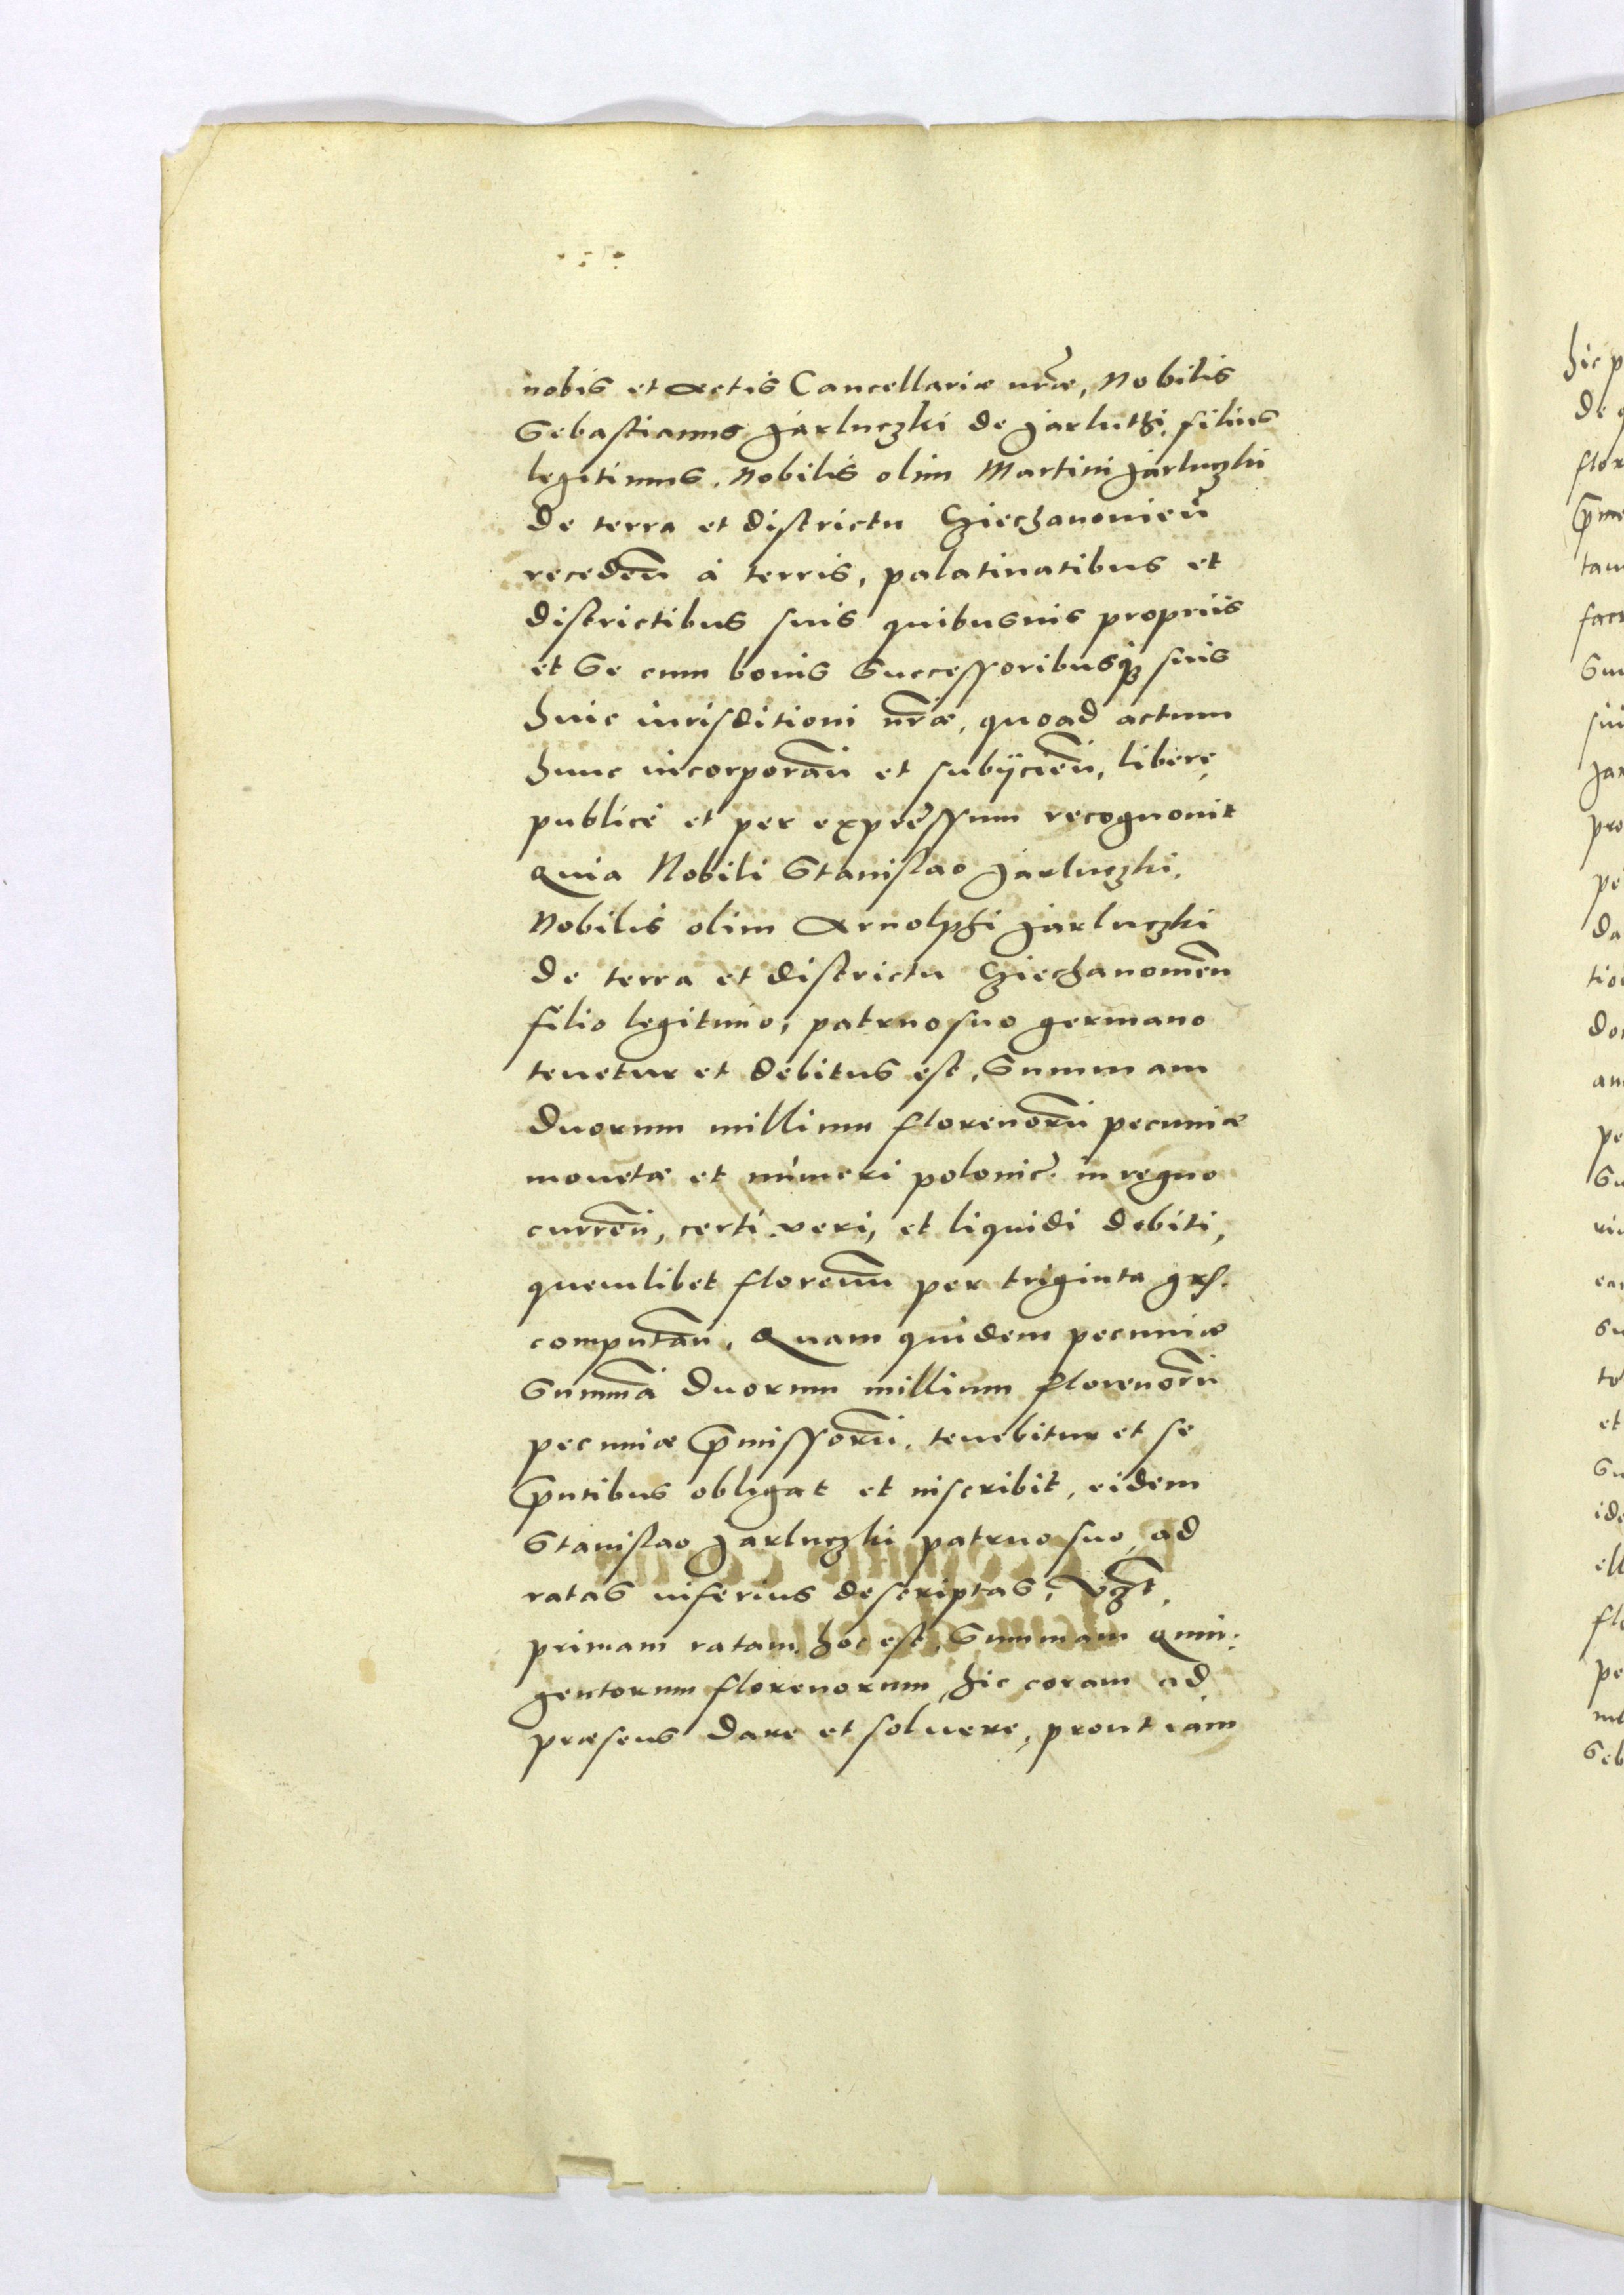 nobis et actis Cancellariæ nr̃æ, Nobilis
Sebastianus Jarluczki de Jarluthi, filius
legitimus, Nobilis olim Martini Jarluczki
de terra et districtu Cziechanouień
receden̄ à terris, palatinatibus et
districtibus suis quibusuis propriis
et se cum bonis Successoribusq₃ suis
huic iurisditioni nr̃æ, quoad actum
hunc incorporan̄ et subijcien̄, liberę
publicè et per expressum recognouit
Quia Nobili Stanislao Jarluczki,
Nobilis olim Arnolphi Jarluczki
de terra et districtu Cziechanouien̄
filio legitimo, patruo suo germano
tenetur et debitus est, Summam
duorum millium florenorū pecuniæ
monetæ et numeri polonic̃. in regno
curren̄, certi veri, et liquidi debiti,
quemlibet florenum per triginta grs.
computan̄, Quam quidem pecuniæ
Summā duorum millium florenorū
pecuniæ p̄missorū, tenebitur et se
p̄ntibus obligat et inscribit, eidem
Stanislao Jarluczki patruo suo, ad
ratas inferius descriptas, vꝫt,
primam ratam, hoc est, Summam Quin:
gentorum florenorum, hic coram ad
præsens dare et soluere, prout iam
hic p